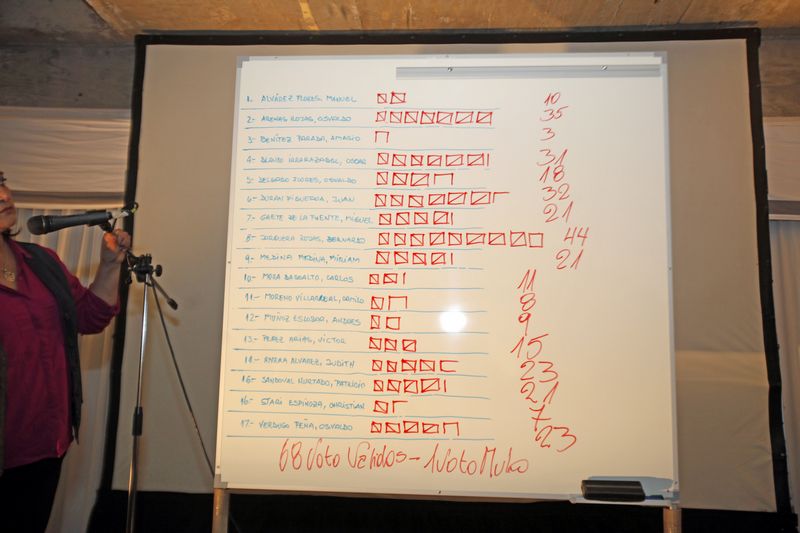 1. ALVAREZ FLORES, MANUEL 10
2- ARENAS ROJAS, OSVALDO 35
3- BENÍTEZ PARADA, AMARIO 3
4- IRRARAZABAL, OSCAR 31
5- DELGADO FLORES, OSVALDO 18
6- DURAN FIGUEROA, JUAN 32
7- GAETE DE LA FUENTE, MIGUEL 21
8- JORQUERA ROJAS, BERNARDO 44
9- MEDINA MEDINA, MIRIAM 21
10- MORA BASOALTO, CARLOS 11
11- MORENO VILLARREAL, CAMILO 8
12- MUÑOZ ESCOBAR, ANDRES 9
13- PEREZ ARIAS, VICTOR 15
14- ALVAREZ, JUDITH 23
15- SANDOVAL HURTADO, PATRICIO 21
16- STARI ESPINOZA, CHRISTIAN 7
17- VERDUGO PEÑA, OSVALDO 23
68 Voto Válidos - 1 Voto Nulo